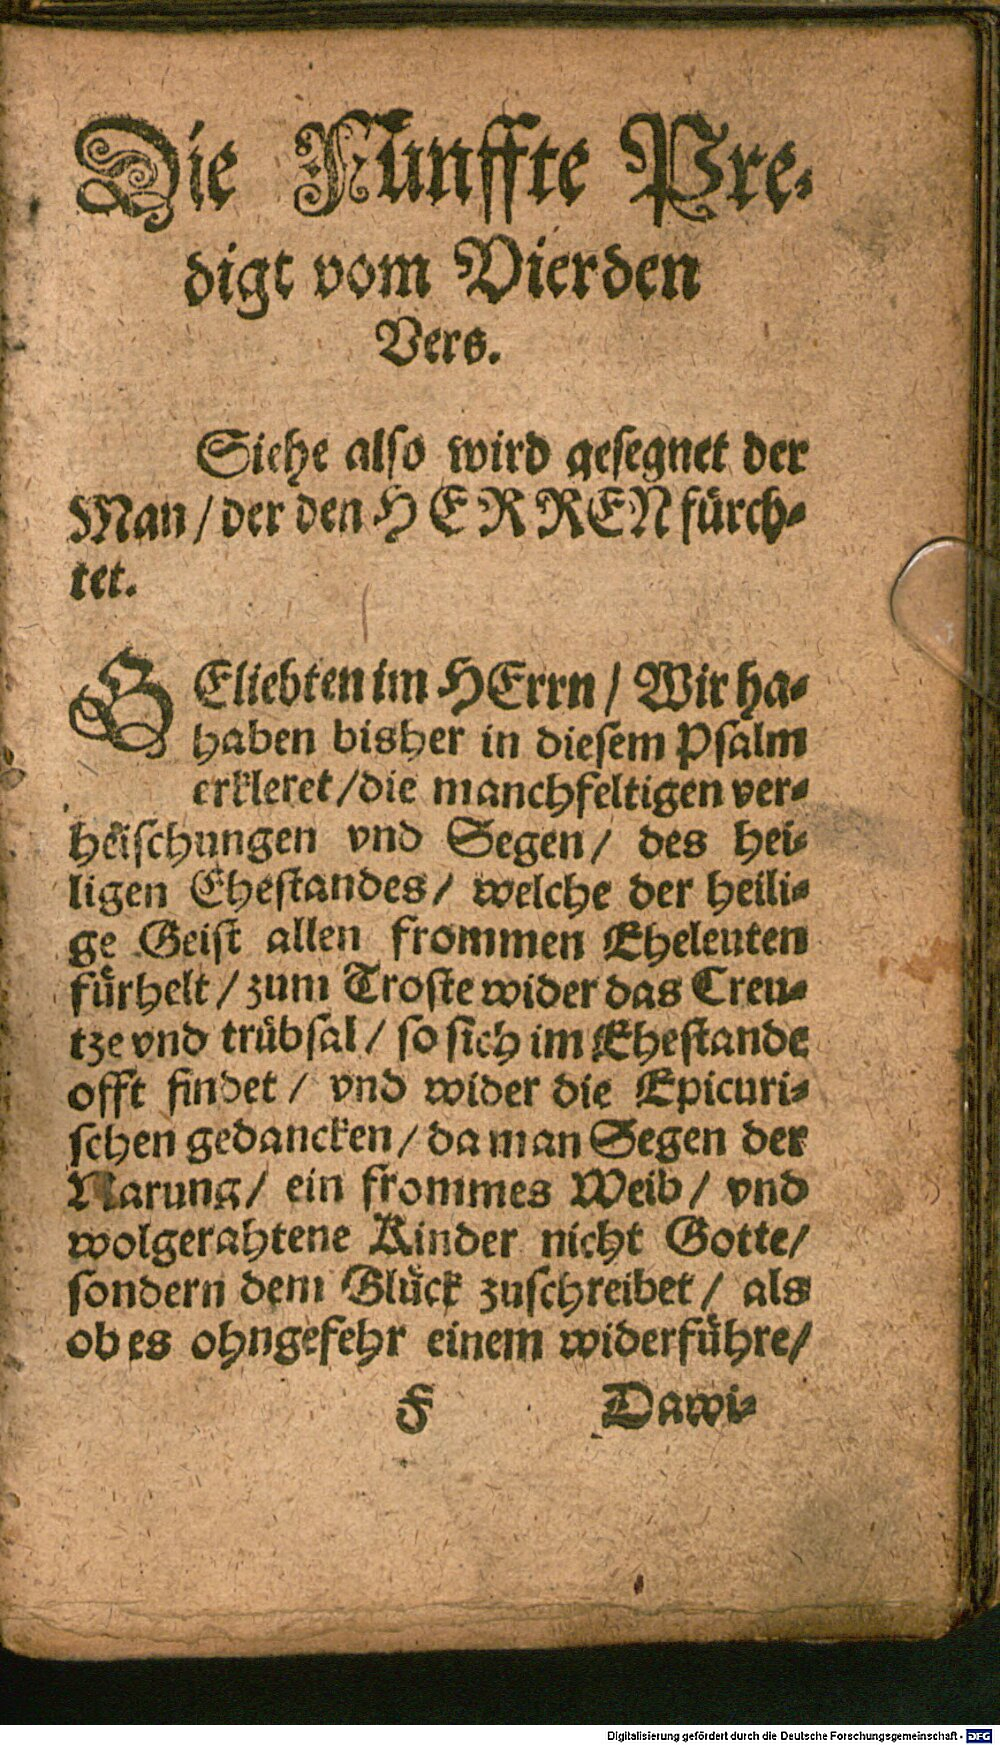 Die Funffte Pre-
digt vom Vierden
Vers.
Siehe also wird gesegnet der
Man / der den HERREN fürch-
tet.
GEliebten im HErrn / Wir ha-
haben bisher in diesem Psalm
erkleret / die manchfeltigen ver-
heischungen vnd Segen / des hei-
ligen Ehestandes / welche der heili-
ge Geist allen frommen Eheleuten
fürhelt / zum Troste wider das Creu-
tze vnd trübsal / so sich im Ehestande
offt findet / vnd wider die Epicuri-
schen gedancken / da man Segen der
Narung / ein frommes Weib / vnd
wolgerahtene Kinder nicht Gotte /
sondern dem Glück zuschreibet / als
ob es ohngefehr einem widerführe /
F Dawi-
Digitalisierung gefördert durch die Deutsche Forschungsgemeinschaft - DFG